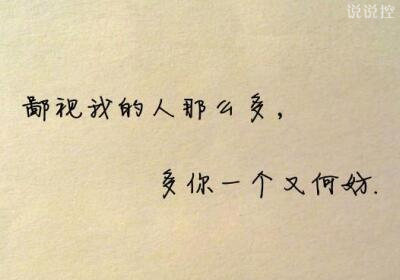 说说控
鄙视我的人那么多，
多你一个又何妨.